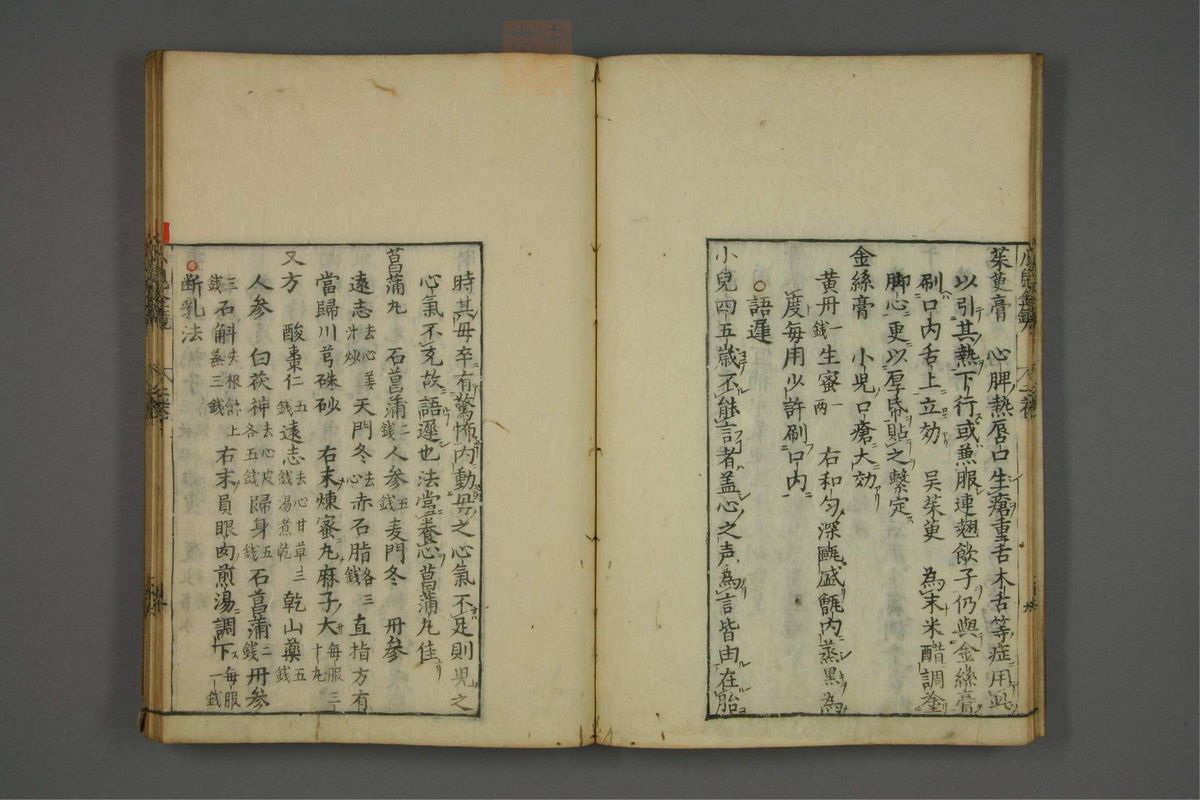 茱萸膏　心脾熱唇口生瘡重舌木舌等症用此
以引其熱下行或兼服連翹飲子仍與金絲膏
刷口内舌上立効　吴茱萸　為末米醋調塗
脚心更以厚帋貼之繫定
金絲膏　小児口瘡大効
黄丹一錢生蜜一两　右和匀深甌盛甑内蒸黒為
度每用少許刷口内
○語遲
小兒四五歳不能言者盖心之声為言皆由在胎
時其母卒有驚怖内動母之心氣不足則児之
心氣不充故語遲也法當養心菖蒲丸佳
菖蒲丸　石菖蒲二錢人参五錢麦門冬　丹参
遠志去心姜汁炒天門冬去心赤石脂各三錢直指方有
當歸川芎硃砂　右末煉蜜丸麻子大每服三十丸
又方　酸棗仁五錢遠志去心甘草三錢湯煮乾乾山藥五錢
人参　白茯神去心皮各五錢歸身五錢石菖蒲二錢丹参
三錢石斛去根三錢右末員眼肉煎湯調下每服一錢
○断乳法